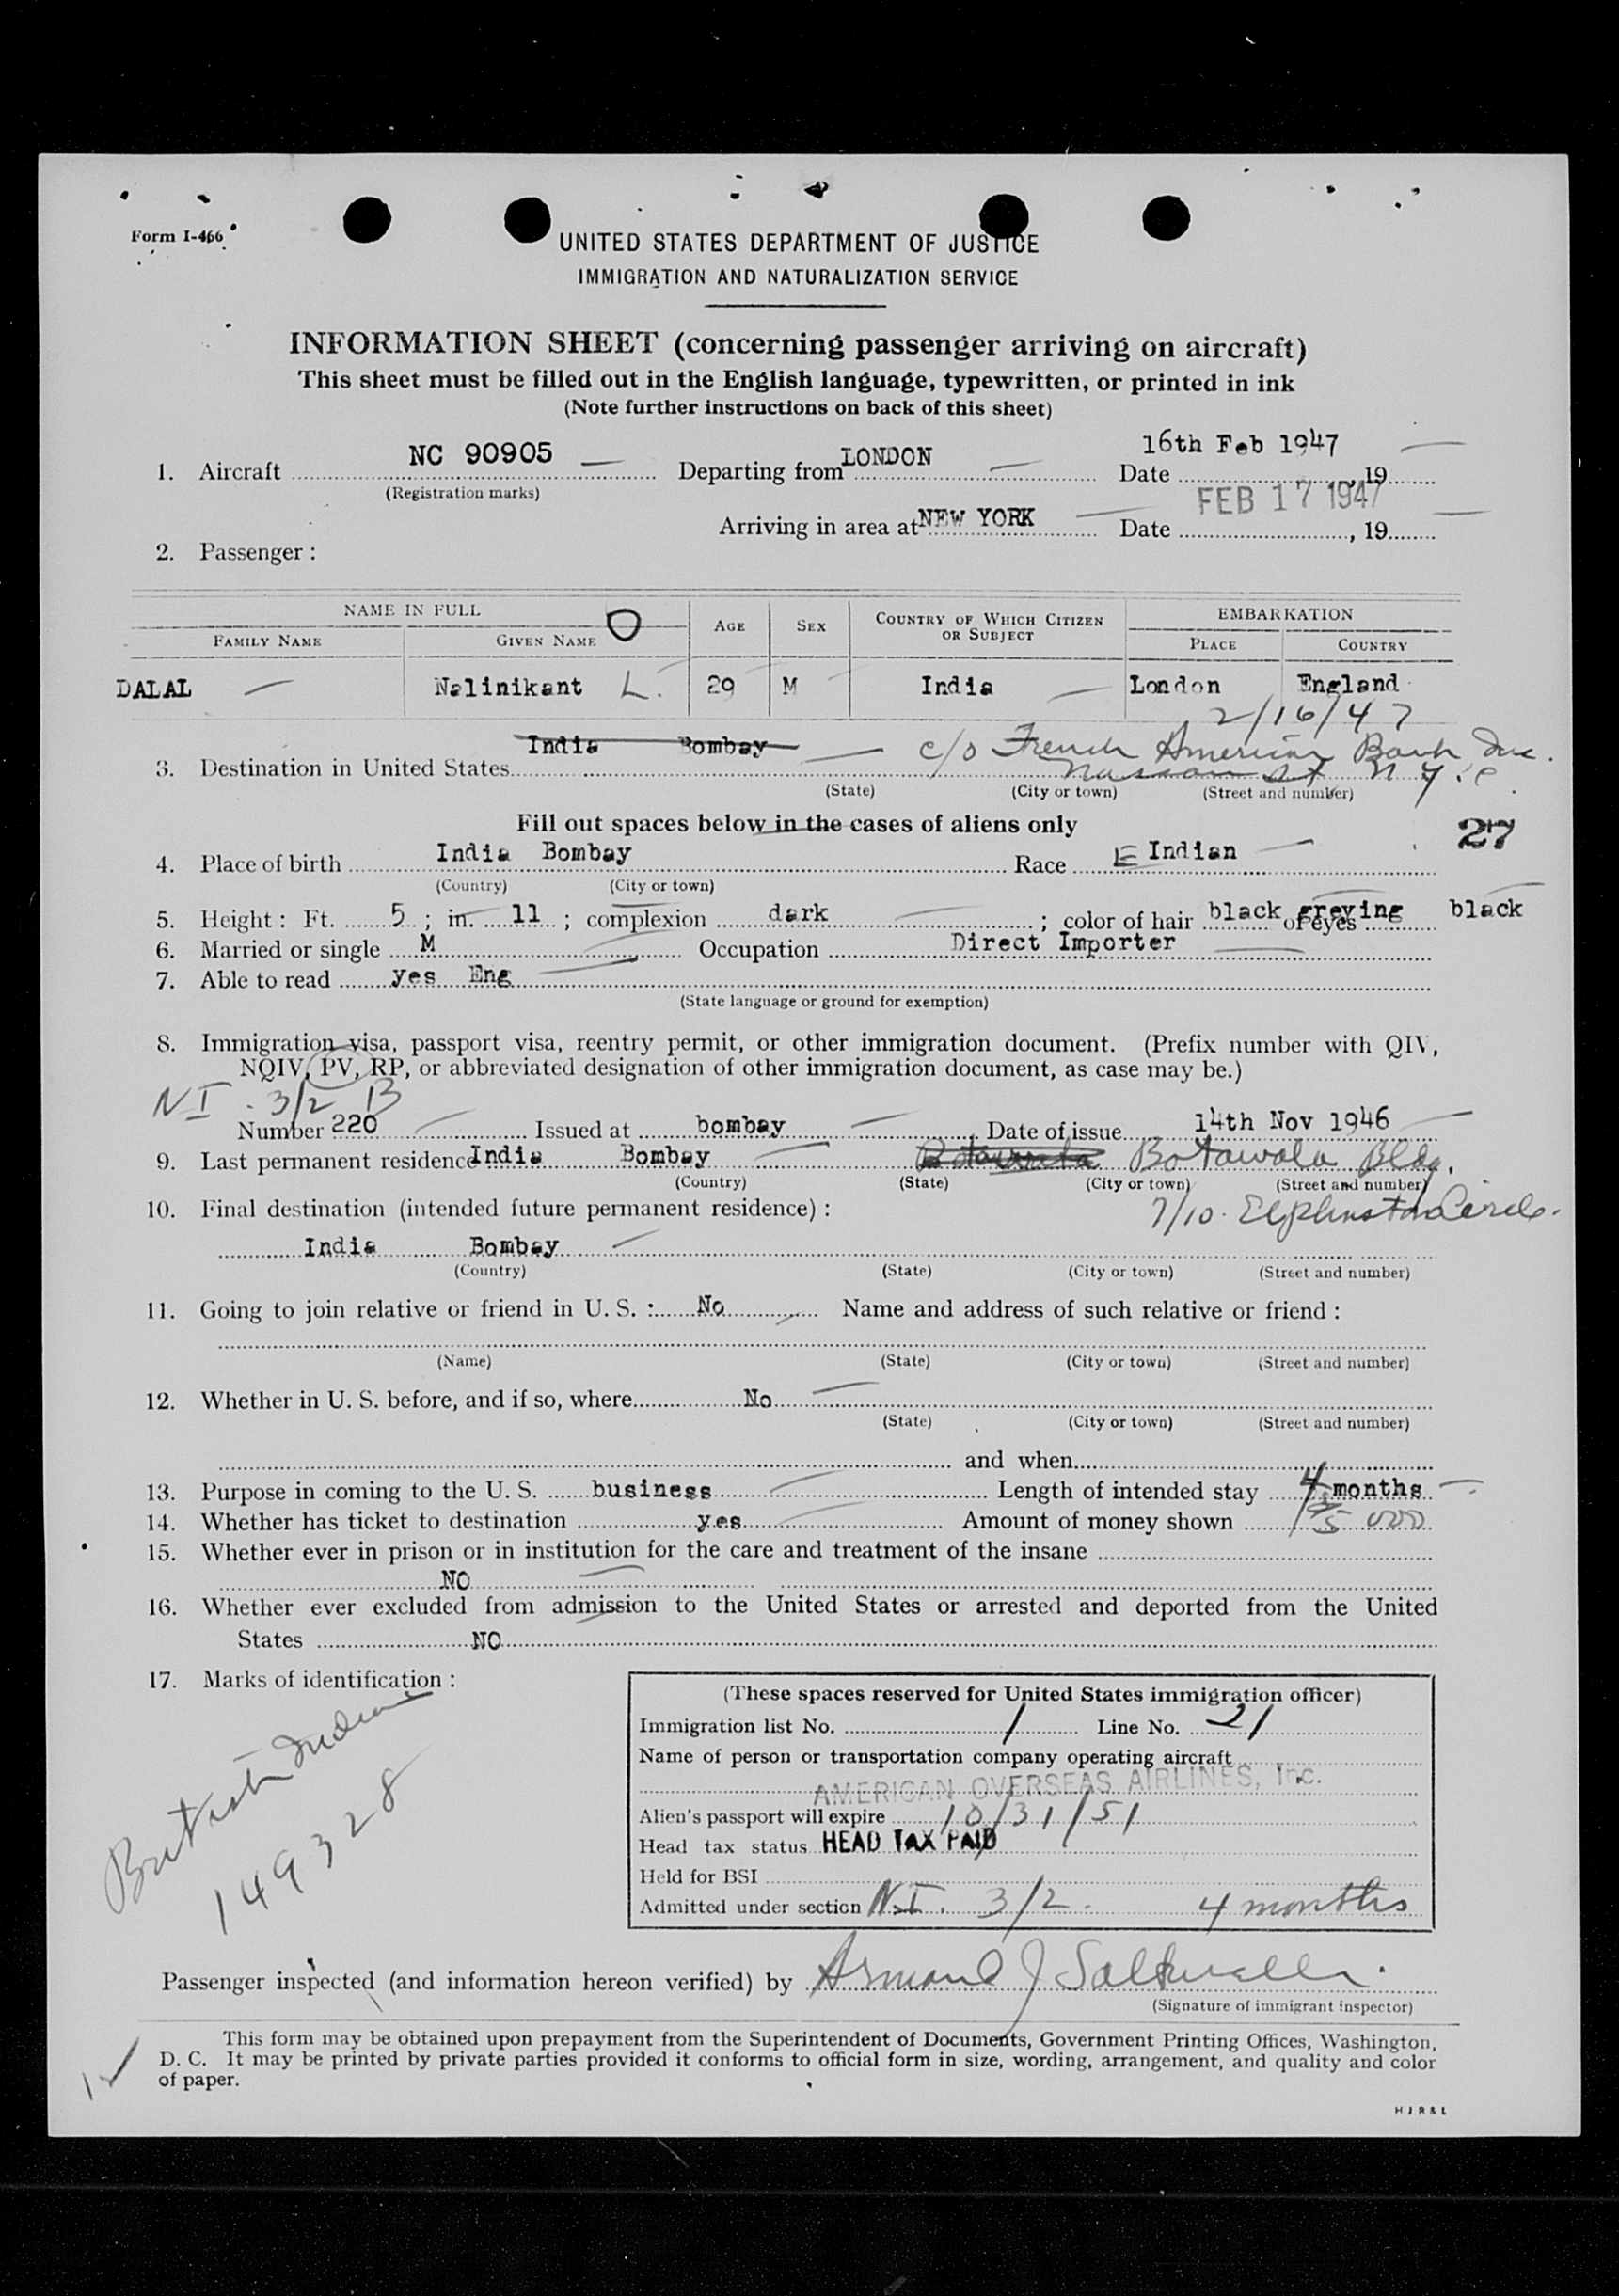 Form I-466
UNITED STATES DEPARTMENT OF JUSTICE
IMMIGRATION AND NATURALIZATION SERVICE
INFORMATION SHEET (concerning passenger arriving on aircraft)
This sheet must be filled out in the English language, typewritten, or printed in ink
(Note further instructions on back of this sheet)
1. Aircraft NC 90905 Departing from LONDON Date 16th Feb 1947, 19
(Registration marks)
Arriving in area at NEW YORK Date FEB 17 1947, 19
2. Passenger :
NAME IN FULL O AGE SEX COUNTRY OF WHICH CITIZEN OR SUBJECT EMBARKATION
FAMILY NAME GIVEN NAME PLACE COUNTRY
DALAL Nalinikant L. 29 M India London England
2/16/47
3. Destination in United States India Bombay c/o French American Bank Inc.
Nassau St N.Y.C.
(State) (City or town) (Street and number)
Fill out spaces below in the cases of aliens only
27
4. Place of birth India Bombay Race E Indian
(Country) (City or town)
5. Height : Ft. 5 ; in. 11 ; complexion dark ; color of hair black greying of eyes black
6. Married or single M Occupation Direct Importer
7. Able to read yes Eng
(State language or ground for exemption)
8. Immigration visa, passport visa, reentry permit, or other immigration document. (Prefix number with QIV,
NQIV, PV, RP, or abbreviated designation of other immigration document, as case may be.)
NI - 3/2 B
Number 220 Issued at bombay Date of issue 14th Nov 1946
9. Last permanent residence India Bombay Botawala Bldg.
(Country) (State) (City or town) (Street and number)
7/10. Elphinston Circle.
10. Final destination (intended future permanent residence) :
India Bombay
(Country) (State) (City or town) (Street and number)
11. Going to join relative or friend in U. S. : No Name and address of such relative or friend :
(Name) (State) (City or town) (Street and number)
12. Whether in U. S. before, and if so, where No
(State) (City or town) (Street and number)
and when
13. Purpose in coming to the U. S. business Length of intended stay 4 months
14. Whether has ticket to destination yes Amount of money shown
15. Whether ever in prison or in institution for the care and treatment of the insane
NO
16. Whether ever excluded from admission to the United States or arrested and deported from the United
States NO
17. Marks of identification :
British Indian
149328
(These spaces reserved for United States immigration officer)
Immigration list No. 1 Line No. 21
Name of person or transportation company operating aircraft
AMERICAN OVERSEAS AIRLINES, Inc.
Alien's passport will expire 10/31/51
Head tax status HEAD TAX PAID
Held for BSI
Admitted under section N.I. 3/2. 4 months
Passenger inspected (and information hereon verified) by Armand J
(Signature of immigrant inspector)
This form may be obtained upon prepayment from the Superintendent of Documents, Government Printing Offices, Washington,
D. C. It may be printed by private parties provided it conforms to official form in size, wording, arrangement, and quality and color
of paper.
HJR&L